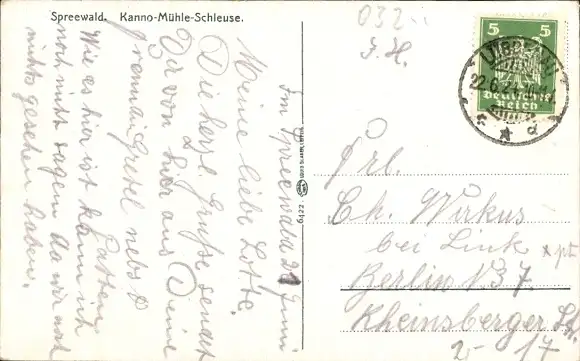 Spreewald. Kanno-Mühle-Schleuse.
032
J. H.
5 5
Deutsches
Reich
Im Spreewald 21 Juni
Meine liebe Lotte.
Die herzl. Grüße sendet
Dir von hier aus Deine
Gretel nebst
Gatten
Wie es hier ist kann ich
noch nicht sagen da wir noch
nichts gesehen haben.
6122
Frl.
Ch. Wirkus
bei Link
Berlin N 37.
Rheinsberger Str.
17